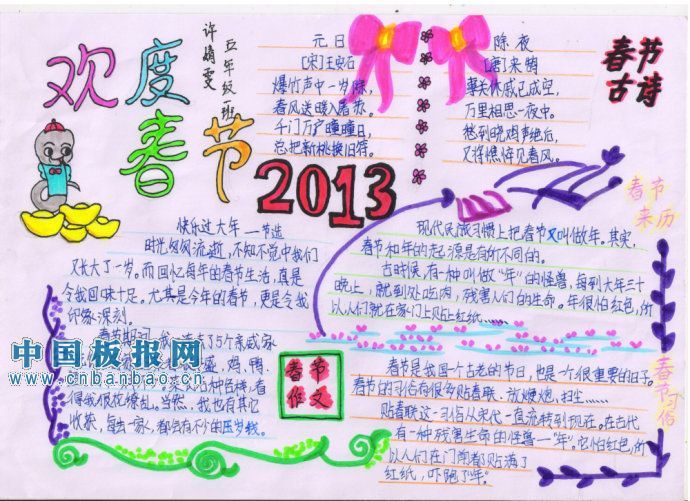 欢度
春节
许婧雯
五年级一班
元日
[宋]王安石
爆竹声中一岁除,
春风送暖入屠苏。
千门万户曈曈日,
总把新桃换旧符。
除夜
[唐]来鹄
事关休戚已成空,
万里相思一夜中。
愁到晓鸡声绝后,
又将憔悴见春风。
春节
古诗
2013
快乐过大年 —节选
时光匆匆流逝,不知不觉中我们
又长大了一岁。而回忆每年的春节生活,真是
令我回味十足。尤其是今年的春节,更是令我
印象深刻。
盛,鸡、鸭、
得我眼花缭乱。当然,我也有其它
收获,每去一家人,都会有不少的压岁钱。
中国板报网
www.cnbanbao.cn
春节
作文
春节
来历
现代民族习惯上把春节又叫做年。其实,
春节和年的起源是有所不同的。
古时候,有一种叫做“年”的怪兽,每到大年三十
晚上,就到处吃肉,残害人们的生命。年很怕红色,所
以人们就在家门上贴上红纸……
春节
习俗
春节是我国一个古老的节日,也是一个很重要的日子。
春节的习俗有很多贴春联、放爆炮、扫尘……
贴春联这一习俗从宋代一直流转到现在。在古代
有一种残害生命的怪兽—“年”。它怕红色,所
以人们在门前都贴满了
红纸,吓跑了“年”。